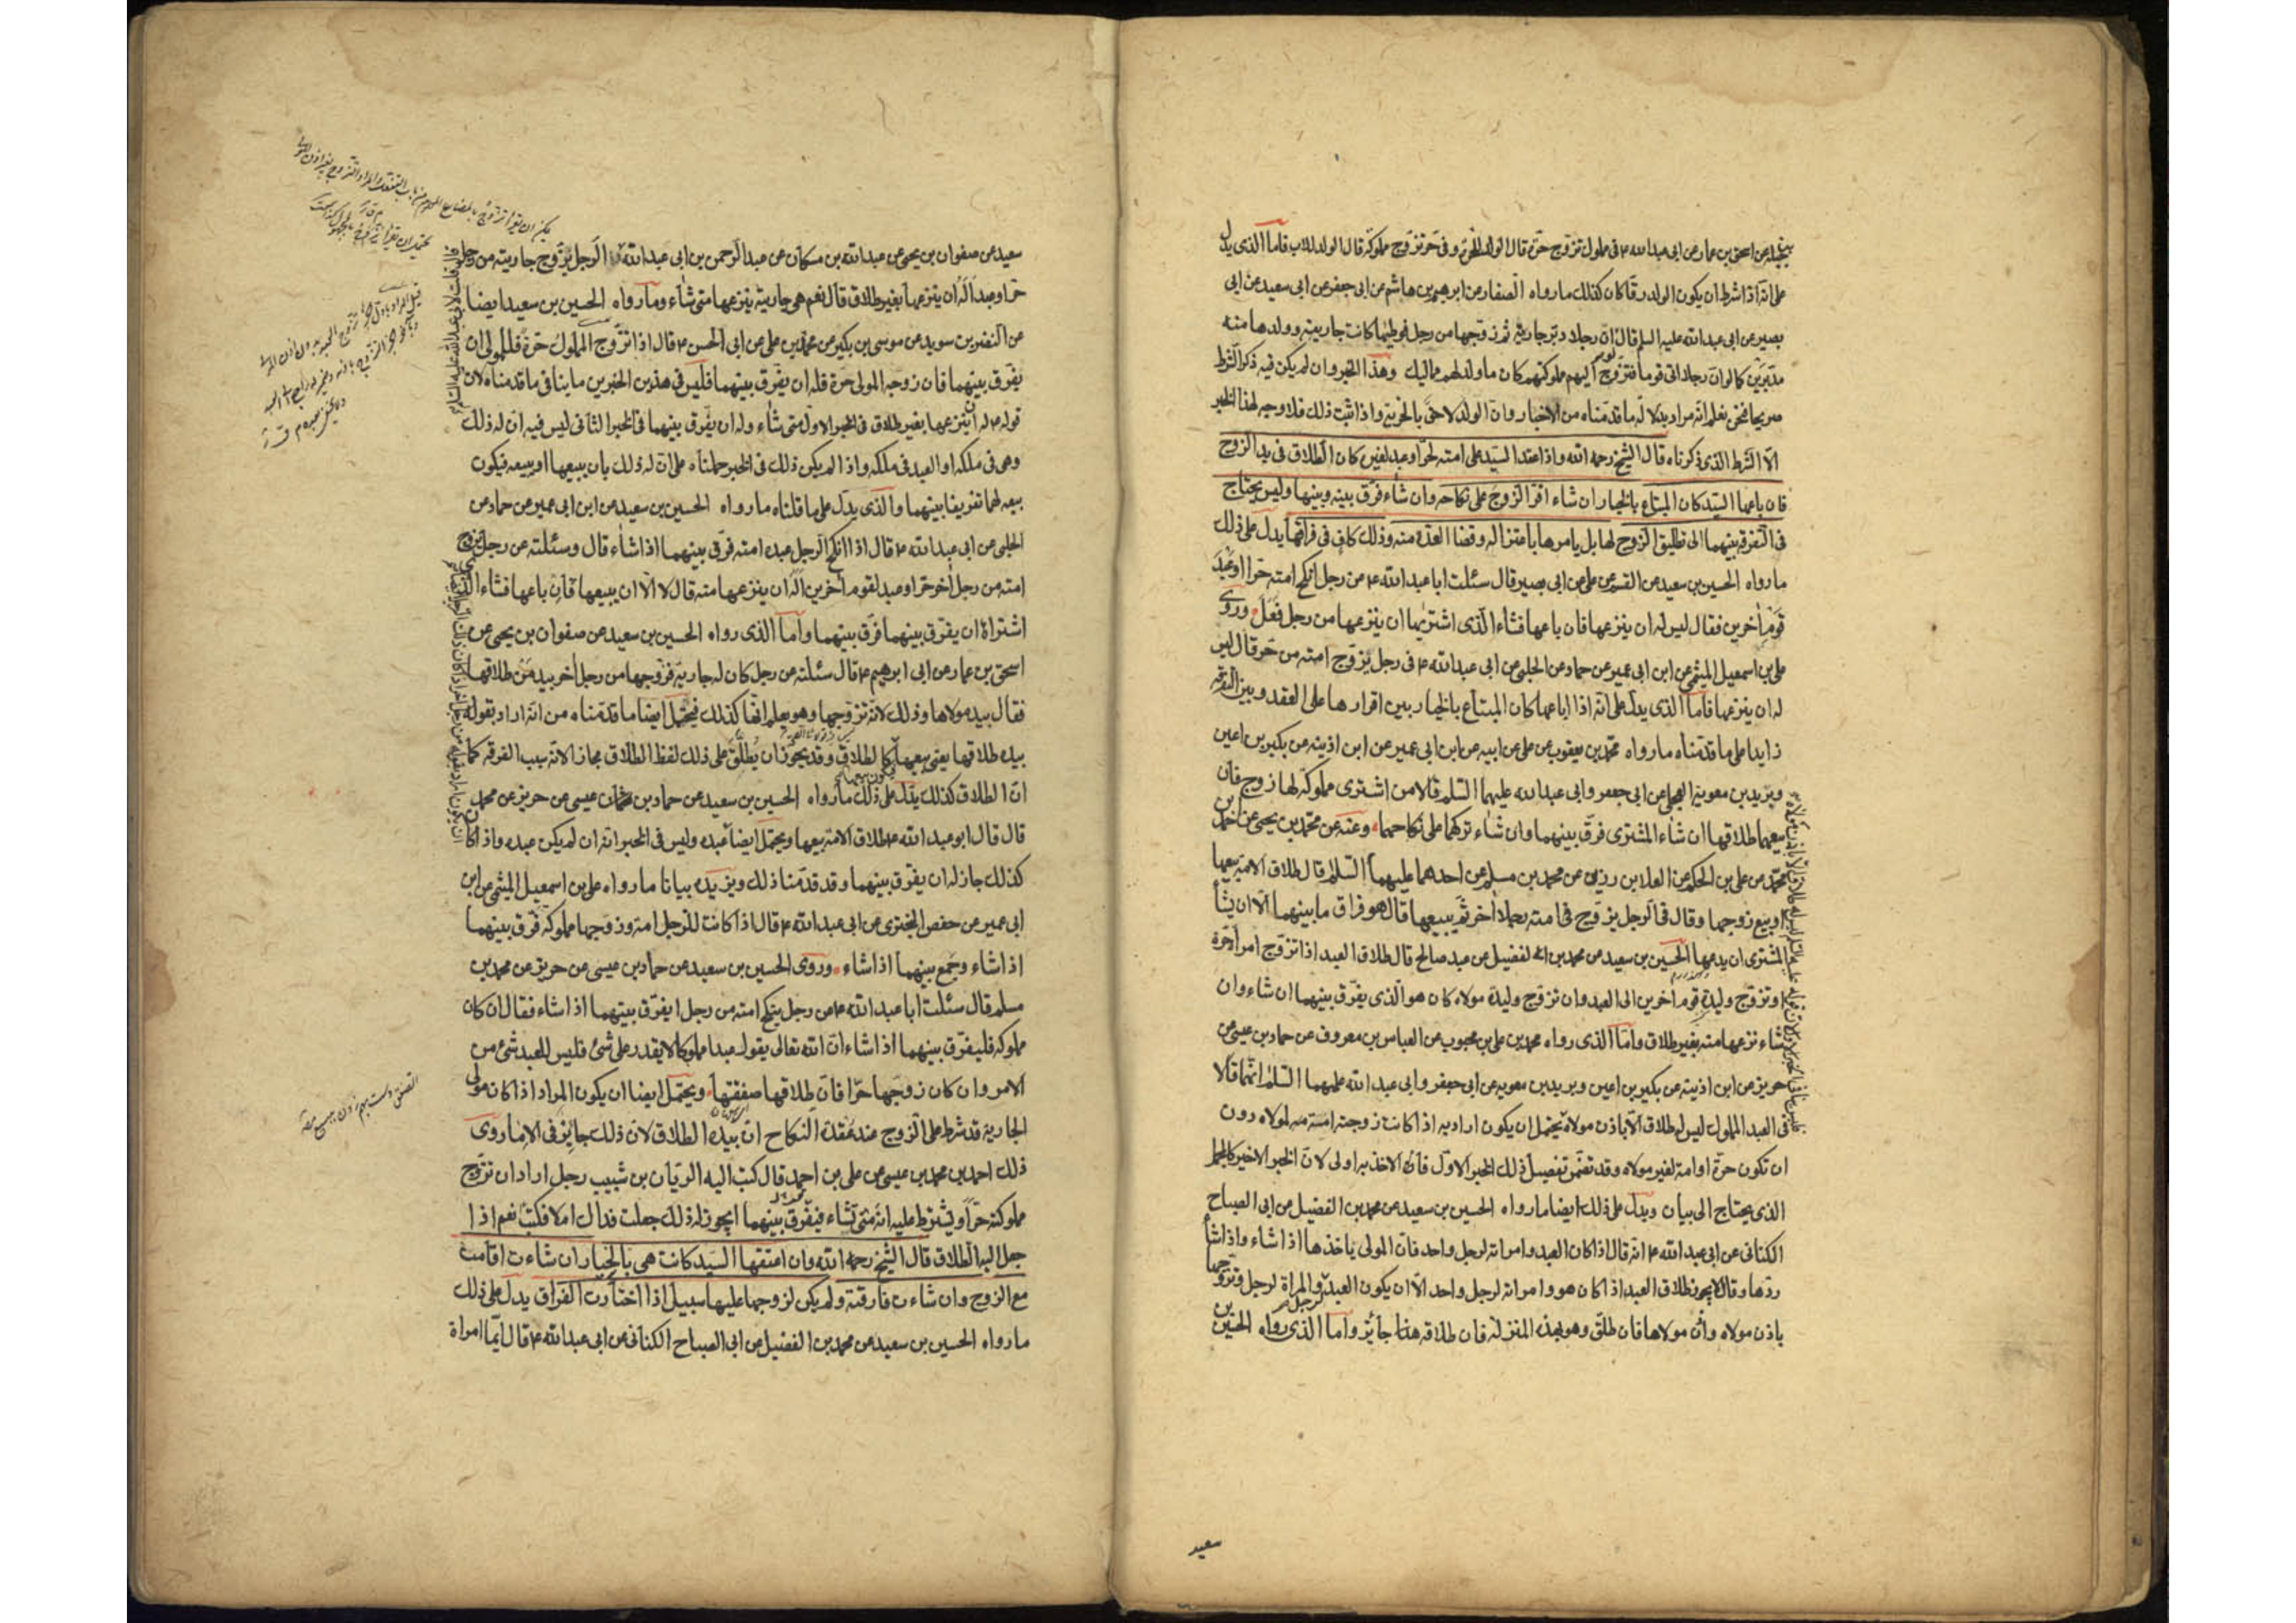 عن اسحق بن عمار عن ابى عبد الله ع فى مملوك تزوج حرة قال الولد للحرة وفى حر تزوج مملوكة قال الولد للاب فاما الذى يدل
على انه اذا شرط ان يكون الولد رقا كان كذلك ما رواه الصفار عن ابرهيم بن هاشم عن ابى جعفر عن ابى سعيد عن ابى
بصير عن ابى عبد الله عليه السلم قال ان رجلا دبر جاريته ثم زوجها من رجل فوطيها كانت جاريته وولدها منه
مدبرين كما لو ان رجلا اتى قوما فتزوج اليهم مملوكتهم كان ما ولد لهم مماليك وهذا الخبر وان لم يكن فيه ذكر الشرط
صريحا فنحن نعلم انه مراد بدلالة ما قدمناه من الاخبار وان الولد لاحق بالحرية واذا ثبت ذلك فلا وجه لهذا الخبر
الا الشرط الذى ذكرناه قال الشيخ رحمه الله واذا عقد السيد على امته لحر او عبد لغيره كان الطلاق فى يد الزوج
فان باعها السيد كان المبتاع بالخيار ان شاء اقر الزوج على نكاحه وان شاء فرق بينه وبينها وليس يحتاج
فى التفرقة بينهما الى تطليق الزوج لها بل يامرها باعتزاله وقضا العدة منه وذلك كاف فى فراقها يدل على ذلك
ما رواه الحسين بن سعيد عن القسم عن على عن ابى بصير قال سئلت ابا عبد الله ع عن رجل انكح امته حرا او عبد
قوم اخرين فقال ليس له ان ينزعها فان باعها فشاء الذى اشتريها ان ينزعها من رجل فعل وروى
على بن اسمعيل الميثمى عن ابن ابى عمير عن حماد عن الحلبى عن ابى عبد الله ع فى رجل يزوج امته من حر قال ليس
له ان ينزعها فاما الذى يدل على انه اذا اباعها كان المبتاع بالخيار بين اقرارها على العقد وبين التفرقة
زايدا على ما قدمناه ما رواه محمد بن يعقوب عن على عن ابيه عن ابن ابى عمير عن ابن اذينه عن بكير بن اعين
وبريد بن معوية العجلى عن ابى جعفر وابى عبد الله عليهما السلم قالا من اشترى مملوكة لها زوج فان
بيعها طلاقها ان شاء المشترى فرق بينهما وان شاء تركهما على نكاحهما وعنه عن محمد بن يحيى عن احمد بن
محمد عن على بن الحكم عن العلا بن رزين عن محمد بن مسلم عن احدهما عليهما السلم قال طلاق الامة بيعها
او بيع زوجها وقال فى الرجل يزوج فى امته رجلا اخر ثم يبيعها قال هو فراق ما بينهما الا ان يشأ
المشترى ان يدعهما الحسين بن سعيد عن محمد بن الفضيل عن عبد صالح قال طلاق العبد اذا تزوج امرأة حرة
او تزوج وليدة قوم اخرين الى العبد وان تزوج وليدة مولاه كان هو الذى يفرق بينهما ان شاء وان
شاء نزعها منه بغير طلاق واما الذى رواه محمد بن على بن محبوب عن العباس بن معروف عن حماد بن عيسى عن
حريز عن ابن اذينه عن بكير بن اعين وبريد بن معويه عن ابى جعفر وابى عبد الله عليهما السلم انهما قالا
فى العبد المملوك ليس له طلاق الا باذن مولاه يحتمل ان يكون اراد به اذا كانت زوجته امته لمولاه دون
ان تكون حرة او امة لغير مولاه وقد تضمن تفصيل ذلك الخبر الاول فان الاخذ به اولى لان الخبر الاخير كالمجمل
الذى يحتاج الى بيان ويدل على ذلك ايضا ما رواه الحسين بن سعيد عن محمد بن الفضيل عن ابى الصباح
الكنانى عن ابى عبد الله ع انه قال اذا كان العبد وامراته لرجل واحد فان المولى ياخذها اذا شاء واذا شأ
ردها وقال لا يجوز طلاق العبد اذا كان هو وامراته لرجل واحد الا ان يكون العبد لرجل والمراة لرجل وتزوجها
باذن مولاه واذن مولاها فان طلق وهو بهذه المنزلة فان طلاقه هذا جائز واما الذى رواه الحسين بن
سعيد
سعيد عن صفوان بن يحيى عن عبد الله بن مسكان عن عبد الرحمن بن ابى عبد الله الرجل يزوج جاريته من رجل
حر او عبد اله ان ينزعها بغير طلاق قال نعم هى جاريته ينزعها متى شاء وما رواه الحسين بن سعيد ايضا
عن النضر بن سويد عن موسى بن بكير عن محمد بن على عن ابى الحسن ع قال اذا تزوج المملوك حرة فللمولى ان
يفرق بينهما فان زوجه المولى حرة فله ان يفرق بينهما فليس فى هذين الخبرين ما ينافى ما قدمناه لان
قوله ع له ان ينزعها بغير طلاق فى الخبر الاول متى شاء وله ان يفرق بينهما فى الخبر الثانى ليس فيه ان له ذلك
وهى فى ملكه او العبد فى ملكه واذا لم يكن ذلك فى الخبر حملناه على ان له ذلك بان يبيعها او يبيعه فيكون
بيعه لهما تفريقا بينهما والذى يدل على ما قلناه ما رواه الحسين بن سعيد عن ابن ابى عمير عن حماد عن
الحلبى عن ابى عبد الله ع قال اذا انكح الرجل عبده امته فرق بينهما اذا شاء قال وسئلته عن رجل يزوج
امته من رجل اخر حر او عبد لقوم اخرين اله ان ينزعها منه قال لا الا ان يبيعها فان باعها فشاء الذى
اشتراها ان يفرق بينهما فرق بينهما واما الذى رواه الحسين بن سعيد عن صفوان بن يحيى عن
اسحق بن عمار عن ابى ابرهيم ع قال سئلته عن رجل كان له جارية فزوجها من رجل اخر بيد من طلاقها
فقال بيد مولاها وذلك لانه تزوجها وهو يعلم انها كذلك فيحتمل ايضا ما قدمناه من انه اراد بقوله
بيده طلاقها يعنى بيعها كالطلاق وقد يجوز ان يطلق على ذلك لفظ الطلاق مجازا لانه سبب الفرقة كما
ان الطلاق كذلك يدل على ذلك ما رواه الحسين بن سعيد عن حماد بن عيسى عن حريز عن محمد
قال قال ابو عبد الله ع طلاق الامة بيعها ويحتمل ايضا عبده وليس فى الخبر انه ان لم يكن عبده واذا كان
كذلك جاز له ان يفرق بينهما وقد قدمنا ذلك ويزيده بيانا ما رواه على بن اسمعيل الميثمى عن ابن
ابى عمير عن حفص البخترى عن ابى عبد الله ع قال اذا كانت للرجل امة وزوجها مملوكه فرق بينهما
اذا شاء وجمع بينهما اذا شاء وروى الحسين بن سعيد عن حماد بن عيسى عن حريز عن محمد بن
مسلم قال سئلت ابا عبد الله ع عن رجل ينكح امته من رجل ايفرق بينهما اذا شاء فقال ان كان
مملوكه فليفرق بينهما اذا شاء ان الله تعالى يقول عبدا مملوكا لا يقدر على شئ فليس للعبد شئ من
الامر وان كان زوجها حرا فان طلاقها صفقتها ويحتمل ايضا ان يكون المراد اذا كان مولى
الجارية قد شرط على الزوج عند عقدة النكاح ان بيده الطلاق لان ذلك جايز فى الاما روى
ذلك احمد بن محمد بن عيسى عن على بن احمد قال كتب اليه الريان بن شبيب رجل اراد ان تزوج
مملوكته حرا ويشترط عليه انه متى شاء فيفرق بينهما ايجوز له ذلك جعلت فداك ام لا فكتب نعم اذا
جعل اليه الطلاق قال الشيخ رحمه الله وان اعتقها السيد كانت هى بالخيار ان شاءت اقامت
مع الزوج وان شاءت فارقته ولم يكن لزوجها عليها سبيل اذا اختارت الفراق يدل على ذلك
ما رواه الحسين بن سعيد عن محمد بن الفضيل عن ابى الصباح الكنانى عن ابى عبد الله ع قال ايما امراة